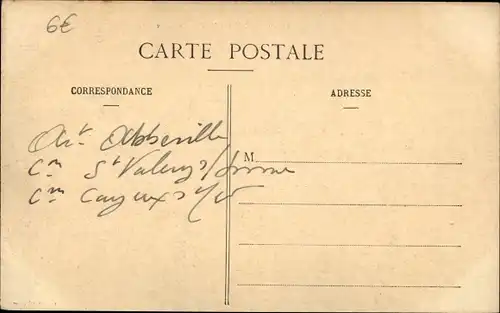 6€
CARTE POSTALE
CORRESPONDANCE
ADRESSE
Art Abbeville
M.
Con St Valery s/Somme
Con Cayeux s/